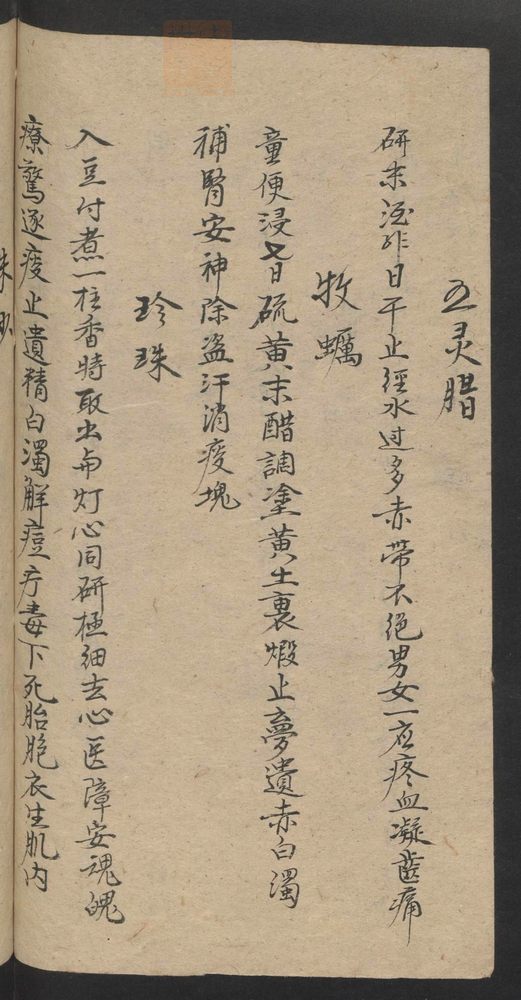 五灵腊
研末酒非日干止經水过多赤带不绝男女一应疼血凝齿痛
牧蠣
童便浸七日硫黄末醋調塗黄土裹煅止夢遺赤白濁
補腎安神除盗汗消痰塊
珍珠
入豆付煮一柱香時取出与灯心同研極細去心医障安魂魄
療驚逐痰止遺精白濁解痘疔毒下死胎胞衣生肌内